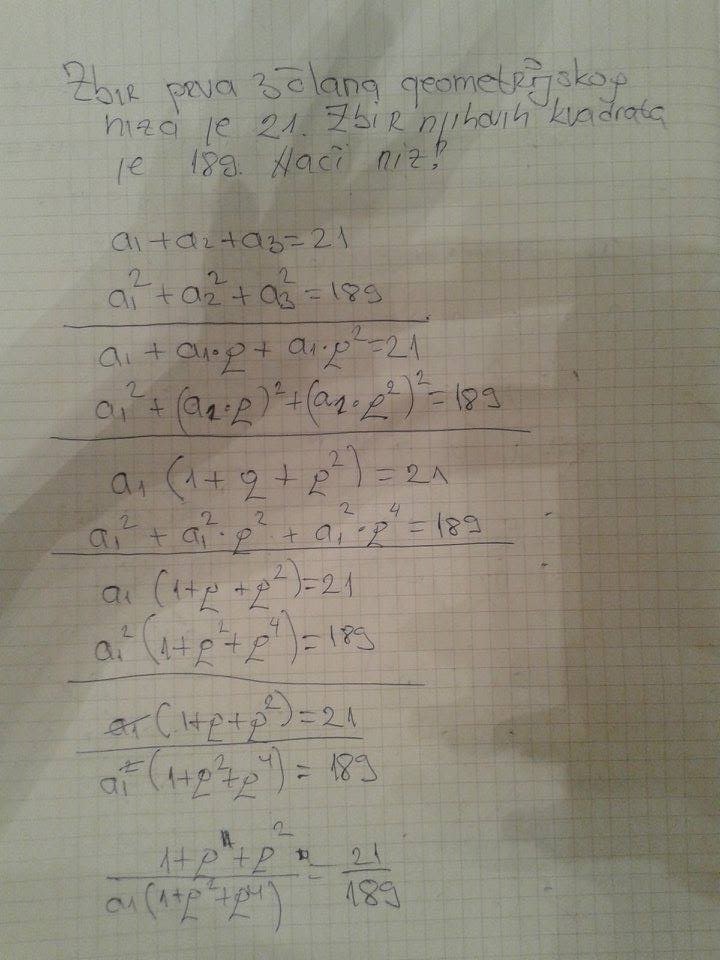 Zbir prva 3 člana geometrijskog
niza je 21. Zbir njihovih kvadrata
je 189. Naći niz?
a₁ + a₂ + a₃ = 21
a₁² + a₂² + a₃² = 189
a₁ + a₁·q + a₁·q² = 21
a₁² + (a₁·q)² + (a₁·q²)² = 189
a₁ (1 + q + q²) = 21
a₁² + a₁²·q² + a₁²·q⁴ = 189
a₁ (1+q+q²) = 21
a₁² (1+q²+q⁴) = 189
a₁ (1+q+q²) = 21
a₁² (1+q²+q⁴) = 189
1+q+q² = 21
a₁(1+q²+q⁴) 189